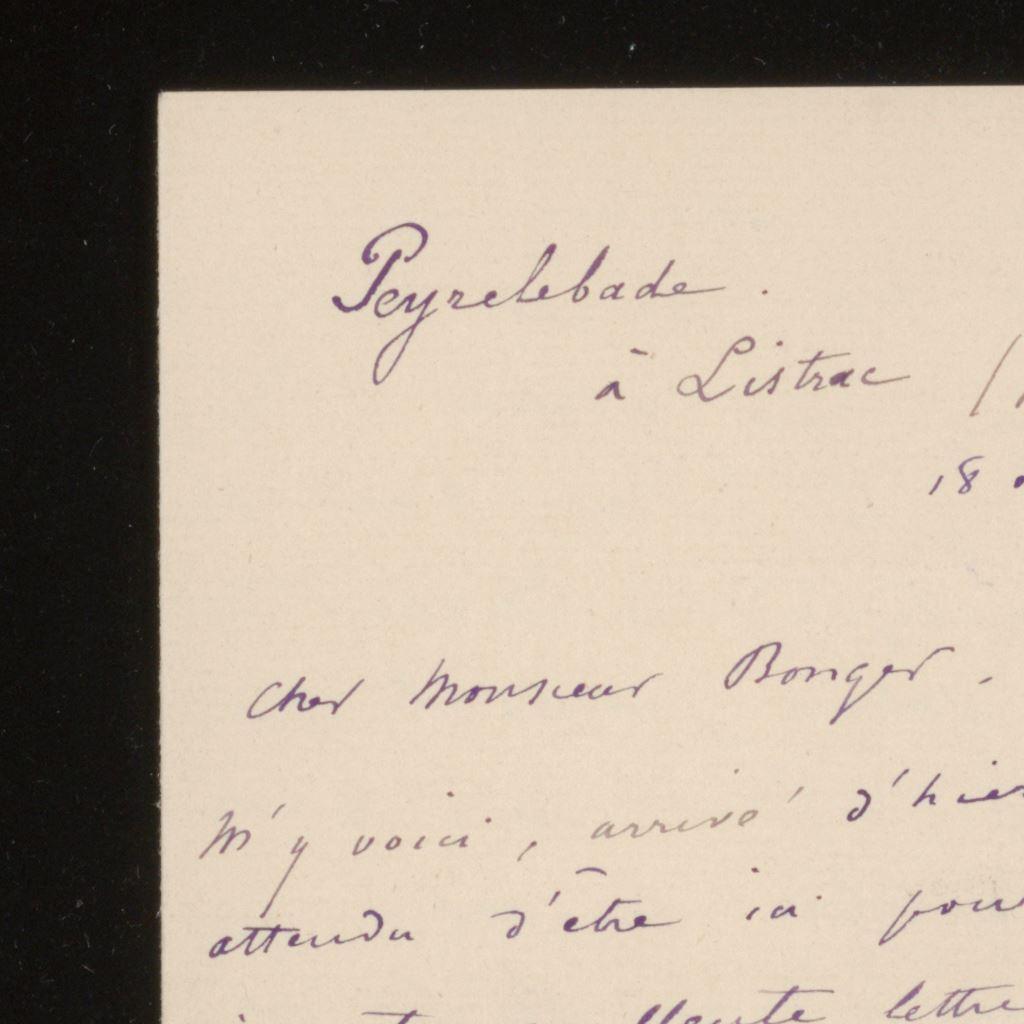 Peyrelebade.
à Listrac (
18
Cher Monsieur Bonger.
M'y voici, arrivé d'hier
attendu d'être ici pour
lettre